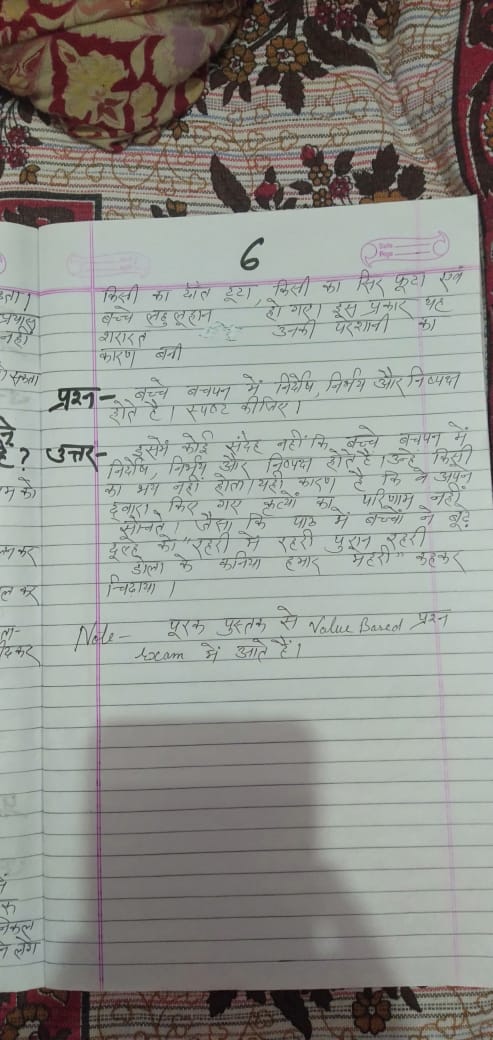 6
Date
Page
किसी का दाँत टूटा, किसी का सिर फूटा एवं
बच्चे लहू लूहान हो गए। इस प्रकार यह
शरारत उनकी परशानी का
कारण बनी
प्रश्न- बच्चे बचपन में निर्दोष, निर्भय और निष्पक्ष
होते है। स्पष्ट कीजिए।
उत्तर- इसमें कोई संदेह नहीं कि बच्चे बचपन में
निर्दोष, निर्भय और निष्पक्ष होते है। उन्हे किसी
का भय नहीं होता। यही कारण है कि वे अपने
द्वारा किए गए कृत्यों का परिणाम नहीं
सोचते। जैसा कि पाठ में बच्चों ने बूढ़े
दूल्हे को "रहरी में रहरी पुरान रहरी
डोला के कनिया हमार मेहरी" कहकर
चिढ़ाया।
Note- पूरक पुस्तक से Value Based प्रश्न
Exam में आते हैं।